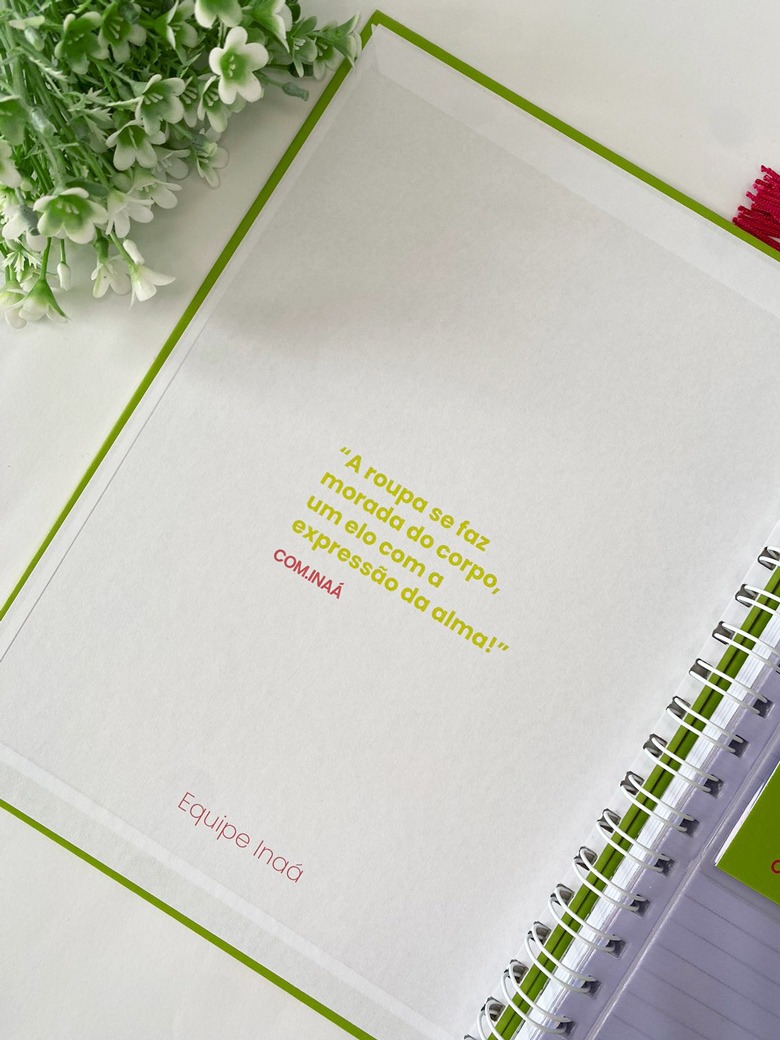 “A roupa se faz
morada do corpo,
um elo com a
expressão da alma!”
COM.INAÁ
Equipe Inaá